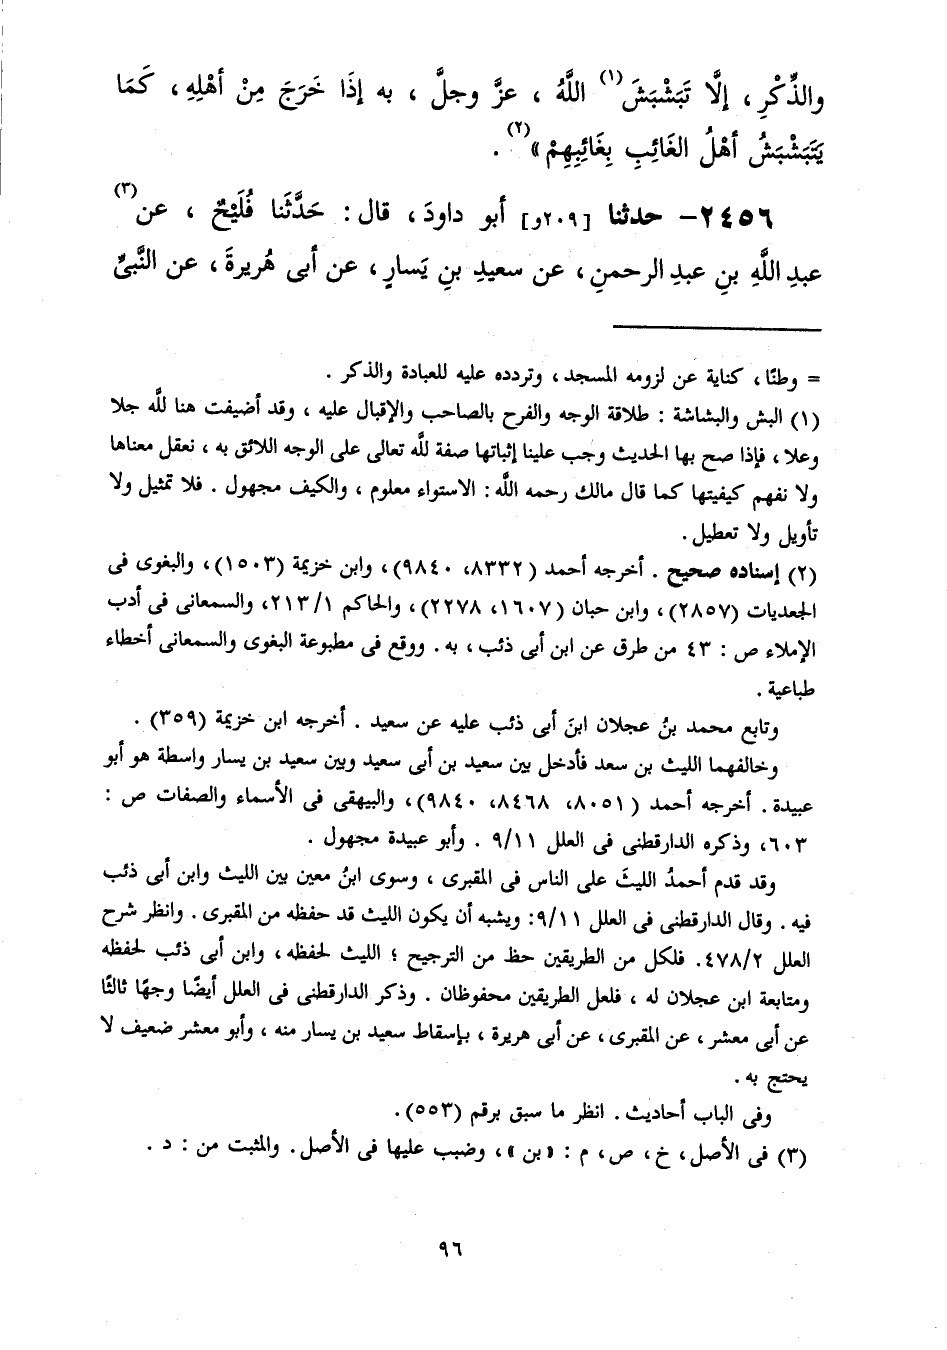 والذِّكْرِ، إلَّا تَبَشْبَشَ(١) اللَّهُ ، عزَّ وجلَّ ، به إذَا خَرَجَ مِنْ أهْلِهِ، كَمَا
يَتَبَشْبَشُ أهْلُ الغَائِبِ بِغَائِبِهِمْ»(٢) .
٢٤٥٦- حدثنا [٢٠٩و] أبو داودَ، قال: حَدَّثَنا فُلَيْحٌ ، عن(٣)
عبدِ اللَّهِ بنِ عبدِ الرحمنِ، عن سعيدِ بنِ يَسارٍ، عن أبى هُريرةَ، عن النَّبىِّ
= وطنًا، كناية عن لزومه المسجد، وتردده عليه للعبادة والذكر .
(١) البش والبشاشة : طلاقة الوجه والفرح بالصاحب والإقبال عليه ، وقد أضيفت هنا للَّه جلا
وعلا، فإذا صح بها الحديث وجب علينا إثباتها صفة للَّه تعالى على الوجه اللائق به ، نعقل معناها
ولا نفهم كيفيتها كما قال مالك رحمه اللَّه: الاستواء معلوم ، والكيف مجهول . فلا تمثيل ولا
تأويل ولا تعطيل.
(٢) إسناده صحيح . أخرجه أحمد (٨٣٣٢، ٩٨٤٠)، وابن خزيمة (١٥٠٣)، والبغوى فى
الجعديات (٢٨٥٧)، وابن حبان (١٦٠٧، ٢٢٧٨)، والحاكم ٢١٣/١، والسمعانى فى أدب
الإملاء ص : ٤٣ من طرق عن ابن أبى ذئب ، به . ووقع فى مطبوعة البغوى والسمعانى أخطاء
طباعية .
وتابع محمد بنُ عجلان ابنَ أبى ذئب عليه عن سعيد . أخرجه ابن خزيمة (٣٥٩) .
وخالفهما الليث بن سعد فأدخل بين سعيد بن أبى سعيد وبين سعيد بن يسار واسطة هو أبو
عبيدة . أخرجه أحمد (٨٠٥١، ٨٤٦٨، ٩٨٤٠)، والبيهقى فى الأسماء والصفات ص :
٦٠٣، وذكره الدارقطنى فى العلل ٩/١١ . وأبو عبيدة مجهول .
وقد قدم أحمدُ الليثَ على الناس فى المقبرى ، وسوى ابنُ معين بين الليث وابن أبى ذئب
فيه . وقال الدارقطنى فى العلل ٩/١١: ويشبه أن يكون الليث قد حفظه من المقبرى . وانظر شرح
العلل ٤٧٨/٢. فلكل من الطريقين حظ من الترجيح ؛ الليث لحفظه، وابن أبى ذئب لحفظه
ومتابعة ابن عجلان له ، فلعل الطريقين محفوظان . وذكر الدارقطنى فى العلل أيضًا وجهًا ثالثًا
عن أبى معشر، عن المقبرى، عن أبى هريرة ، بإسقاط سعيد بن يسار منه ، وأبو معشر ضعيف لا
يحتج به .
وفى الباب أحاديث . انظر ما سبق برقم (٥٥٣).
(٣) فى الأصل، خ، ص، م : «بن»، وضبب عليها فى الأصل . والمثبت من : د .
٩٦